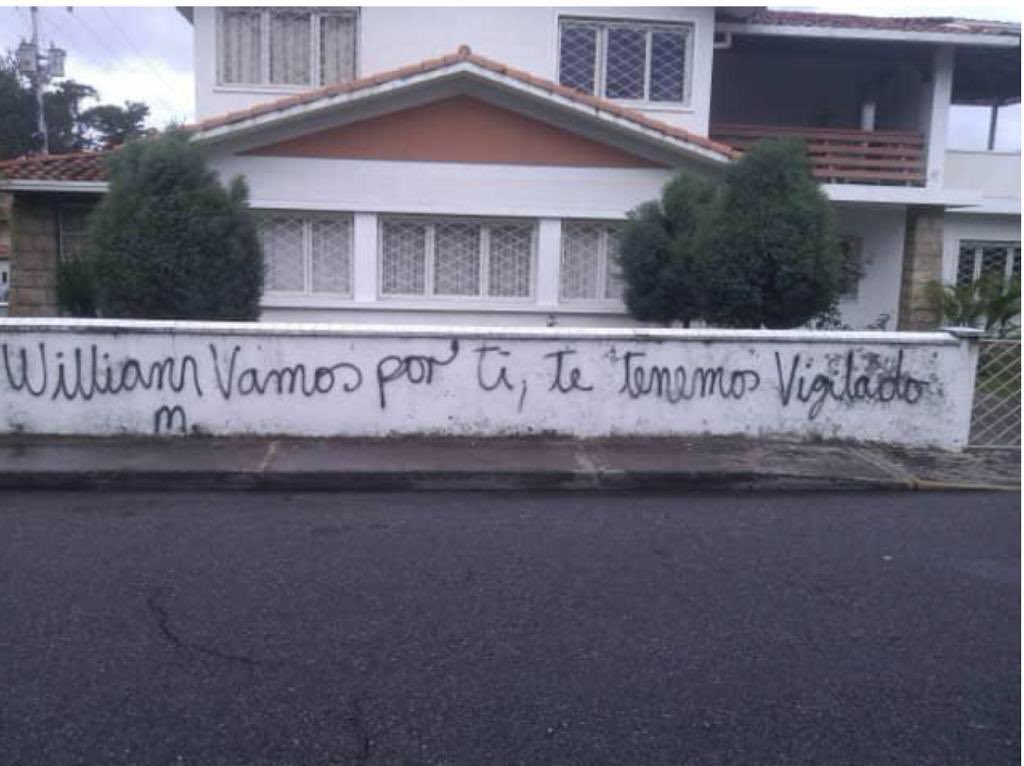 Williann Vamos por ti, te tenemos Vigilado
m.